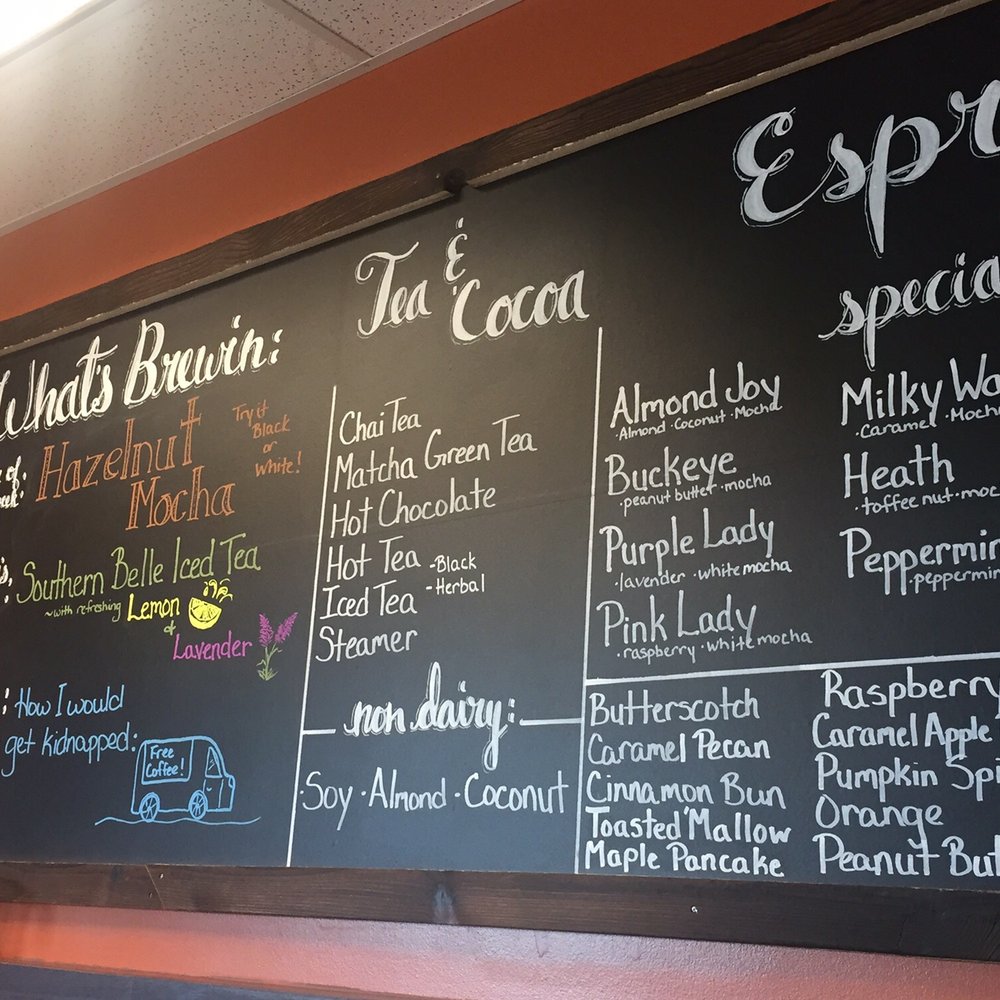 What's Brewin:
Hazelnut
Mocha
Try it
Black
or
White!
Southern Belle Iced Tea
~with refreshing Lemon
&
Lavender
How I would
get kidnapped:
Free
Coffee!
Tea &
Cocoa
Chai Tea
Matcha Green Tea
Hot Chocolate
Hot Tea -Black
-Herbal
Iced Tea
Steamer
non dairy:
·Soy ·Almond ·Coconut
Espr
specia
Almond Joy
·Almond ·Coconut ·Mocha
Buckeye
·peanut butter ·mocha
Purple Lady
·lavender ·white mocha
Pink Lady
·raspberry ·white mocha
Milky Wa
·Caramel ·Moch
Heath
·toffee nut ·moc
Peppermin
·peppermin
Butterscotch
Caramel Pecan
Cinnamon Bun
Toasted 'Mallow
Maple Pancake
Raspberry
Caramel Apple
Pumpkin Spi
Orange
Peanut But